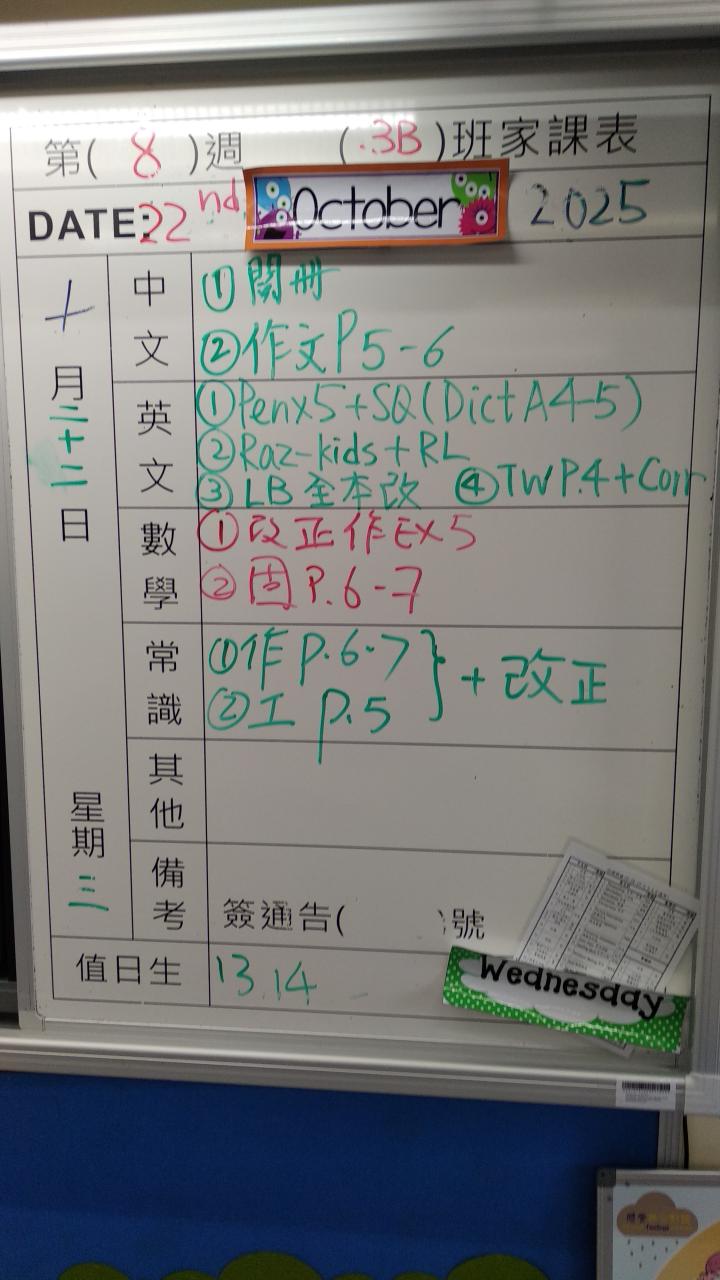 第( 8 )週 ( 3B )班家課表
DATE: 22nd October 2025
十月二十二日
星期三
中文
① 閱冊
② 作文 P5-6
英文
① Penx5+SQ(Dict A4-5)
② Raz-kids+RL
③ LB 全本改 ④ TW P.4+Corr
數學
① 改正作Ex5
② 固 P.6-7
常識
① 作 p.6-7 } + 改正
② 工 p.5
其他
備考
簽通告( )號
值日生
13 14
Wednesday